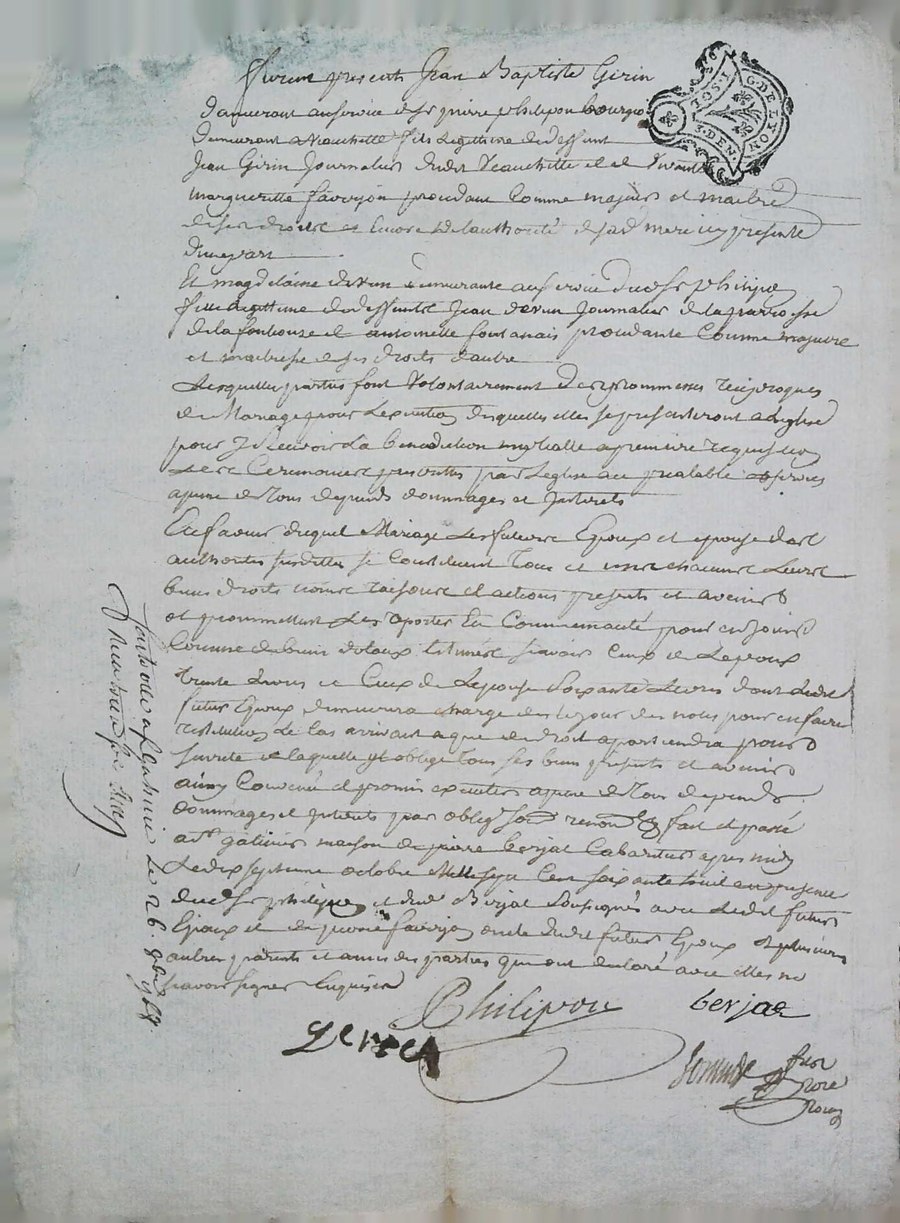 furent presents Jean Baptiste Girin
demeurant au service de Sr pierre philipon bourgeois
demeurant a Veauchette fils legitime de deffunt
Jean Girin Journalier dudit Veauchette et de vivante
marguerite favrejon procedant Comme majeur et maitre
de ses droits et Encore de l'authorité de sad. mere icy presente
d'une part
Et magdelaine devun demeurante au service dudt Sr philipon
fille legitime de deffunct Jean devun Journalier de la parroisse
de la fouillouse et antoinette fontanais procedante Comme majeure
et maitresse de ses droits d'autre
Lesquelles parties font Volontairement des promesses reciproques
de Mariage pour L'execution desquelles elles se presenteront a L'eglise
pour y recevoir La benediction nuptialle a premiere requisition
Les Ceremonies prescrittes par L'eglise au prealable observées
a peine de tous depends dommages et Interets
En faveur duquel Mariage Les futurs Epoux et epouse des
authorités susdittes se Constituent Tous et uns chacuns Leurs
biens droits noms raisons et actions presents et avenirs
et promettent Les aporter En Communauté pour en jouir
Comme de biens dotaux Estimés scavoir Ceux de Lepoux
trente Livres et Ceux de Lepouse Soixante Livres dont Ledit
futur Epoux demeurera chargé des le jour des noces pour en faire
restitution Le Cas arrivant a qui de droit apartiendra pour
sureté de laquelle il oblige tous ses biens presents et avenirs
ainsy Convenu et promis executter a peine de Tous depends
dommages et interets par oblig. soum. renon. fait et passé
a St galmier maison de pierre berjat Cabaretier apres midy
Le dix septieme octobre Mille sept Cent soixante huit en presence
dudt Sr philipon et dudt Berjat Soussignés avec Ledit futur
Epoux et de pierre favrejon oncle dudit futur Epoux et plusieurs
autres parents et amis des parties qui ont declaré avec elles ne
scavoir signer Enquises
Philipon berjat
G. DE LYON
1. SOL. 3. DEN.